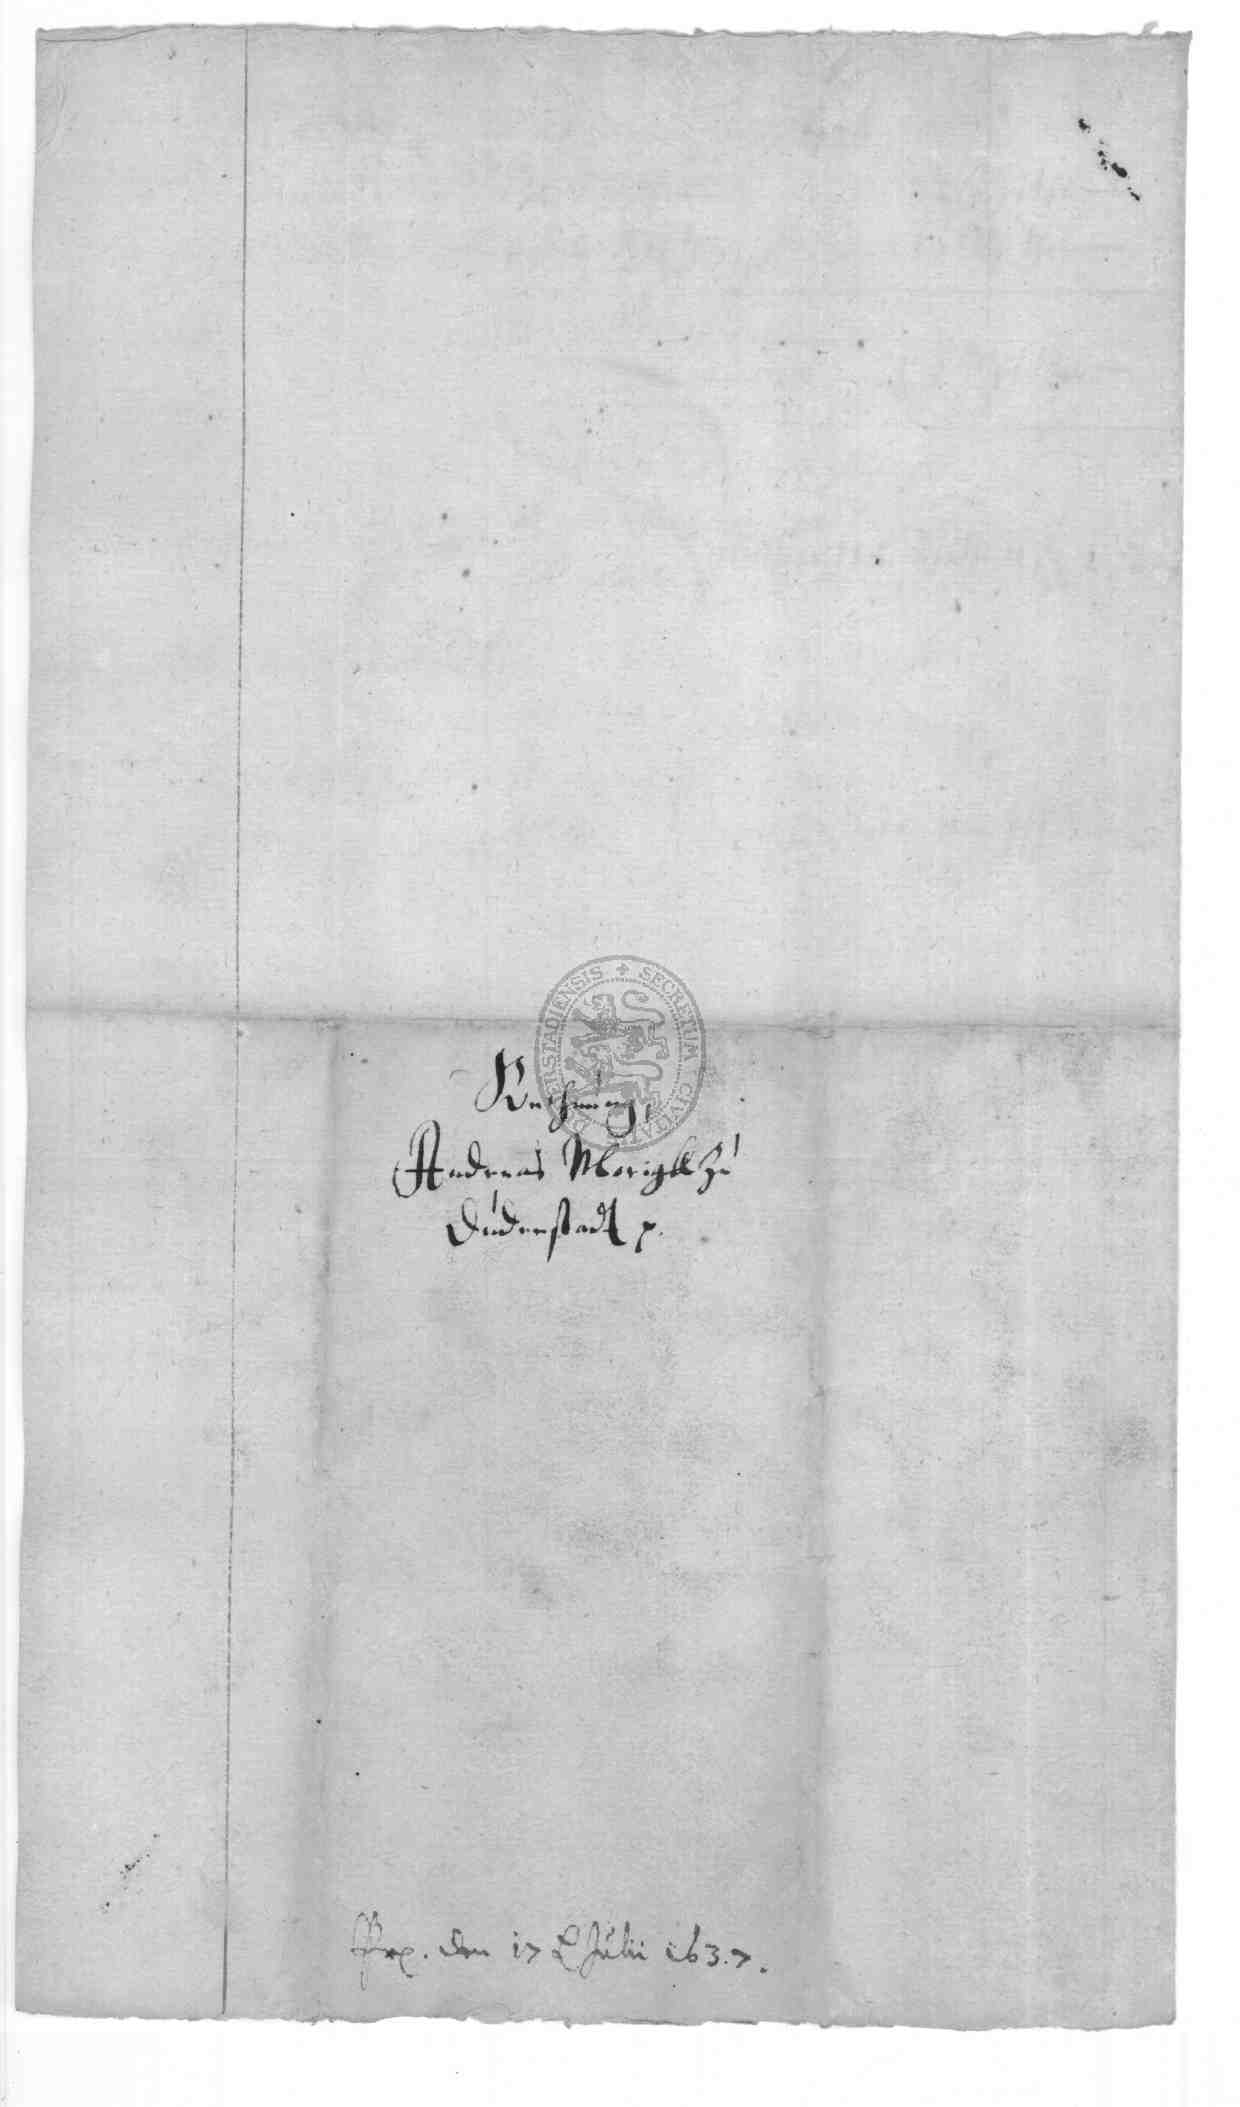 SECRETUM CIVITATIS D...ERSTADIENSIS
Rechnung,
Andreas Morigk Zu
Duderstadt p.
Prx. den 17 Julii 1637.